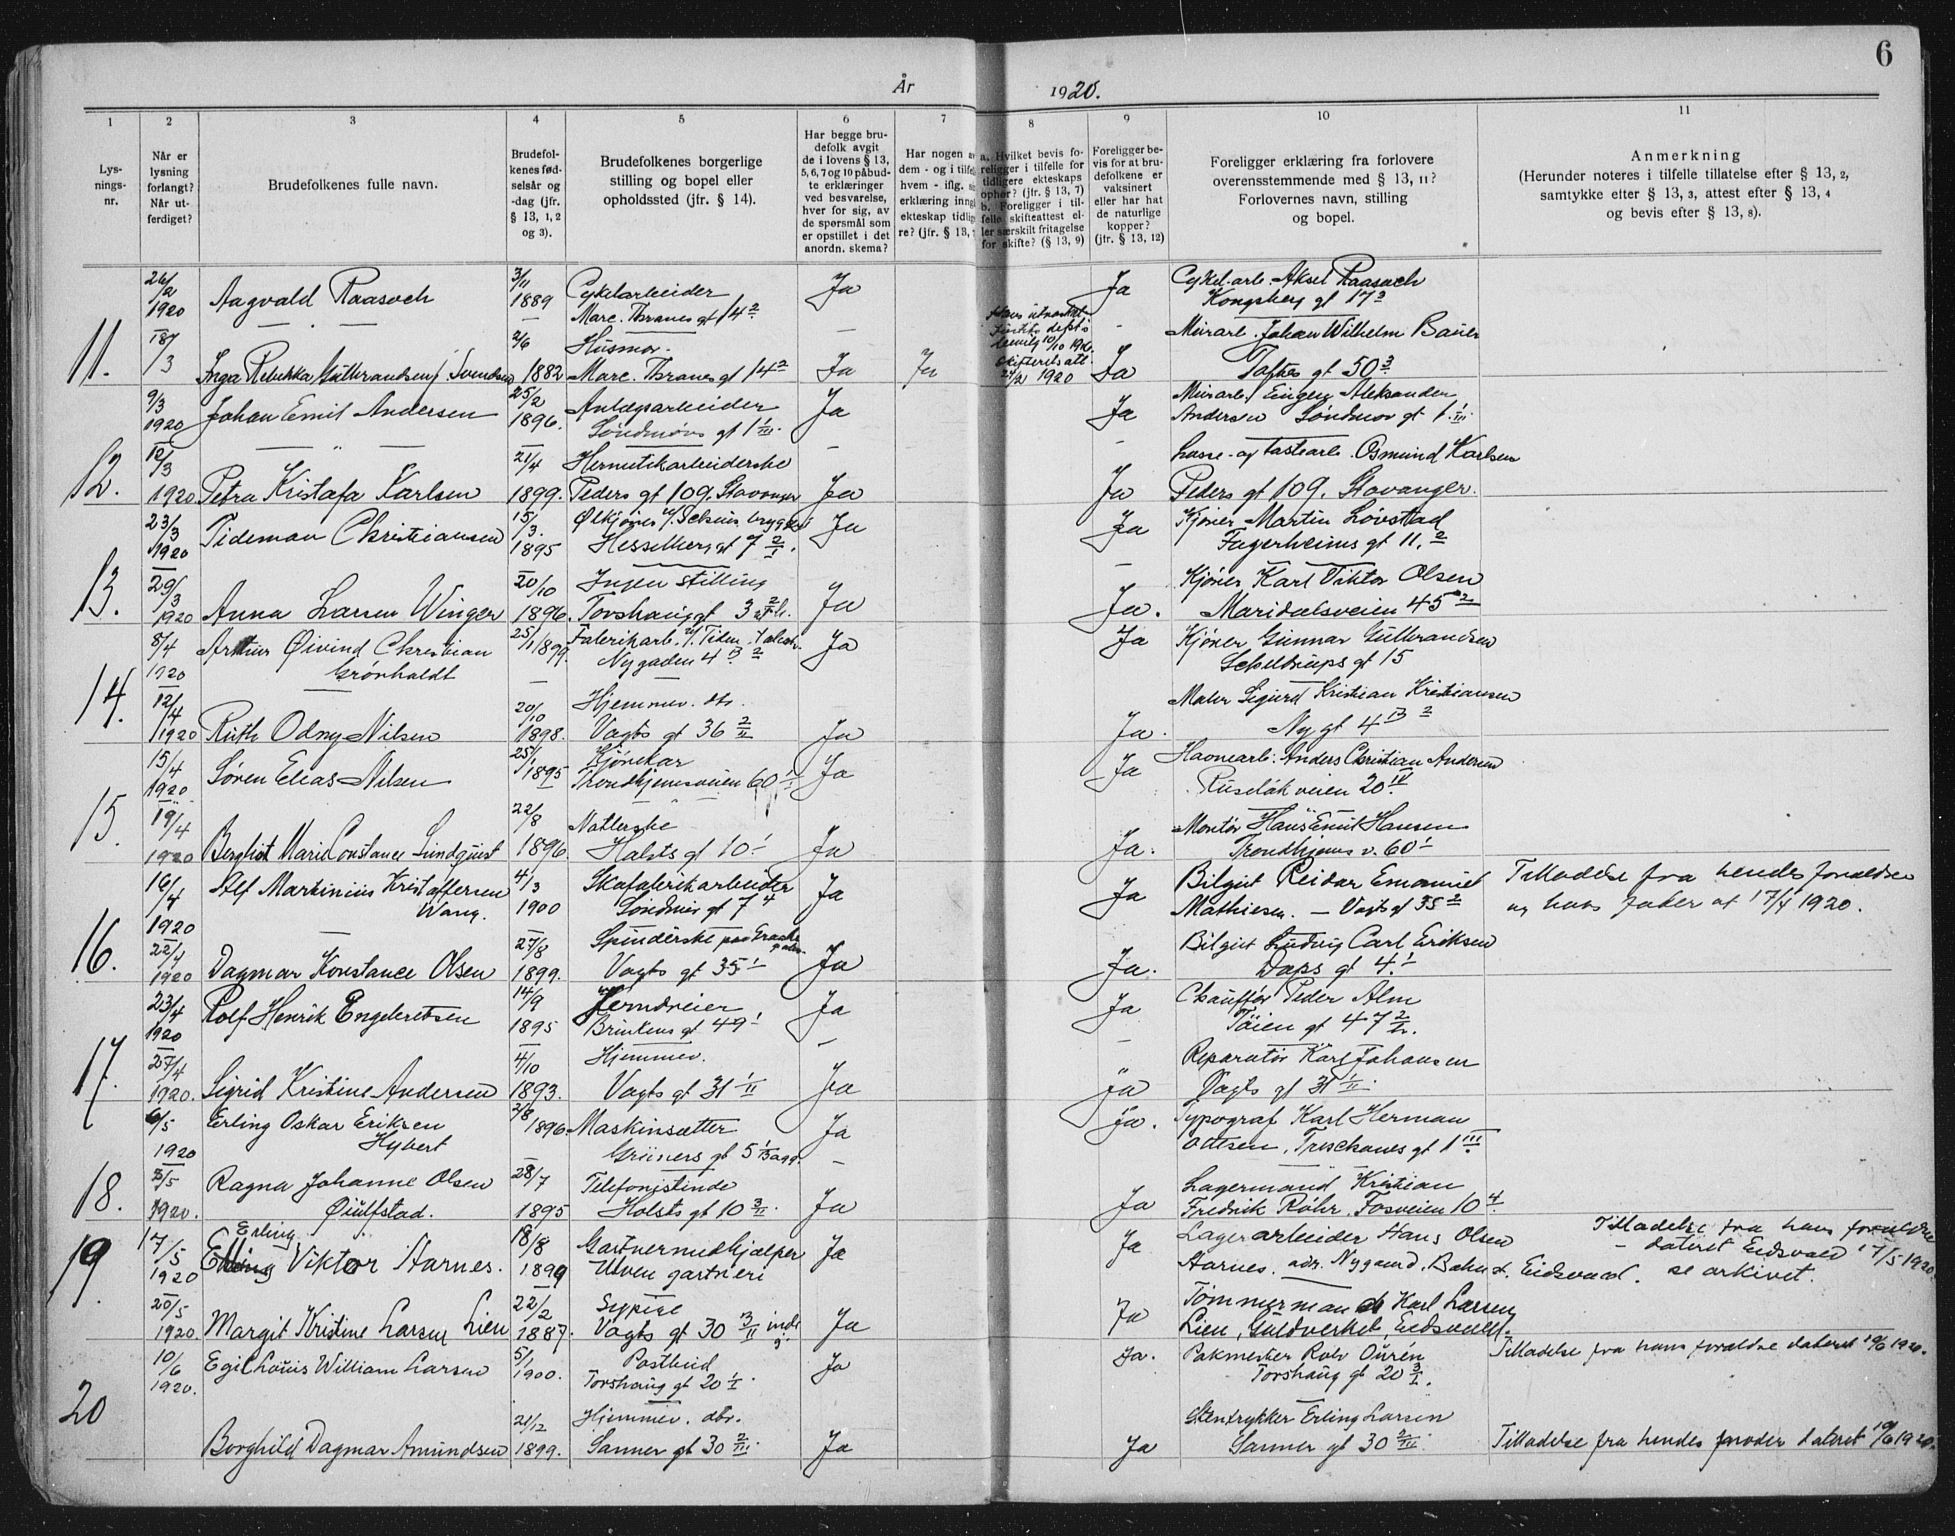 6
År 1920.
1 2 3 4 5 6 7 8 9 10 11
Lys-
nings-
nr.
Når er
lysning
forlangt?
Når ut-
ferdiget?
Brudefolkenes fulle navn.
Brudefol-
kenes fød-
selsår og
-dag (jfr.
§ 13, 1, 2
og 3).
Brudefolkenes borgerlige
stilling og bopel eller
opholdssted (jfr. § 14).
Har begge bru-
defolk avgit
de i lovens § 13,
5, 6, 7 og 10 påbud-
te erklæringer
ved besvarelse,
hver for sig, av
de spørsmål som
er opstillet i det
anordn. skema?
Har nogen a
dem - og i tilfe
hvem - iflg.
erklæring inng
ekteskap tidlig
re? (jfr. § 13,
a. Hvilket bevis fo-
religger i tilfelle for
tidligere ekteskaps
ophør? (jfr. § 13, 7)
b. Foreligger i til-
felle skifteattest el-
ler særskilt fritagelse
for skifte? (§ 13, 9)
Foreligger be-
vis for at bru-
defolkene er
vaksinert
eller har hat
de naturlige
kopper?
(jfr. § 13, 12)
Foreligger erklæring fra forlovere
overensstemmende med § 13, 11?
Forlovernes navn, stilling
og bopel.
Anmerkning
(Herunder noteres i tilfelle tillatelse efter § 13, 2,
samtykke efter § 13, 3, attest efter § 13, 4
og bevis efter § 13, 8).
11.
26/2 1920 Aagvald Raasoch 3/11 1889 Cykelarbeider Ja Ja Cykel.arb. Aksel Raasoch
Marc. Thranes gt 14 2 Kongsberg gt 17 3
18/3 2/6 Husmor. Murarb. Johan Wilhelm Bauer
Inga Rebekka Gulbrandsen f. Svendsen 1882 Marc. Thranes gt 14 2 Ja Ja 1920 Ja Toftes gt 50 3
12.
9/3 1920 Johan Emil Andersen 25/2 1896. Anlægsarbeider Ja Ja Murarb. Aleksander
Andersen Søndmør gt 1 1/III
12/3 21/4 Hermetikarbeiderske Losse- og lastearb. Osmund Karlsen
1920 Petra Kristofa Karlsen 1899. Peders gt 109. Stavanger Ja Ja Peders gt 109. Stavanger.
13.
23/3 1920 Tideman Christiansen 15/3. 1895 Ølkjører Ja Ja Kjører Martin Løvstad
Hesselberg gt 7 2/I. Fagerheims gt 11. 2
29/3 1920 Anna Larsen Winger 20/10 1896. Ingen stilling Ja Ja. Kjører Karl Viktor Olsen
Torshaug gt 3 Maridalsveien 45 2
14.
8/4 1920 Arthur Øivind Christian 25/1 1899. Fabrikarb. Ja Ja Kjører Gunnar Gulbrandsen
Grønholdt Nygaden 4 B 2 Scheltrups gt 15
12/4 20/10 Hjemmev. Maler Sigurd Kristian Kristiansen
1920 Ruth Odny Nilsen 1898. Vogts gt 36 2/II Ja Ja. Ny gt 4 B 2
15.
15/4 1920 Søren Elias Nilsen 25/1 1895 Kjørekar Ja Ja Havnearb. Anders Christian Andersen
Trondhjemsveien 60 1 Ruseløkveien 20 IV
19/4 22/8 Natlerske Montør Hans Emil Hansen
1920 Bergliot Marie Constance Lundquist 1896. Holsts gt 10 1 Ja Ja. Trondhjems v. 60 1
16.
16/4 1920 Alf Martinius Kristoffersen 4/3 1900 Skofabrikarbeider Ja Ja Bilgut Reidar Emanuel Tilladelse fra hendes forældre
Wang. Søndmør gt 7 4 Mathiesen. — Vogts gt 35 2 og hans fader af 17/4 1920.
22/4 27/8 Spinderske Bilgut Ludvig Carl Eriksen
1920 Dagmar Konstance Olsen 1899. Vogts gt 35 1 Ja Ja. Daas gt 4. 1
17.
23/4 1920 Rolf Henrik Engebretsen 14/9 1895 Jerndreier Ja Ja Chauffør Peder Alm
Brinkens gt 49 1 Tøien gt 47 2
27/4 4/10 Hjemmev. Reparatør Karl Johansen
1920. Sigrid Kristine Andersen 1893. Vogts gt 31 1/II Ja Ja Vogts gt 31 1/II.
18.
6/5 1920 Erling Oskar Eriksen 2/8 1896 Maskinsætter Ja Ja. Typograf Karl Herman
Hybert Grüners gt 5 1/B Ottesen, Treschows gt 1 III
Ragna Johanne Olsen 28/7 Telefonistinde Lagermand Kristian
1920. Øiulfstad. 1895 Holsts gt 10 3/II. Ja Ja Fredrik Röhr. Fosveien 10 4.
19.
17/5 1920 Erling Viktor Aarnes. 18/8 1899 Gartnermedhjælper Ja Ja Lagerarbeider Hans Olsen Tilladelse fra hans forældre
Ulven gartneri Aarnes. adr. Nygaard, Bahn st. Eidsvold. — dateret Eidsvold 17/5 1920
se arkivet.
20/5 22/2 Sypige Tømmermand Karl Larsen
1920. Margit Kristine Larsen Lien 1887. Vogts gt 30 3/II Ja Ja Lien, Guldverket, Eidsvold.
20
10/6 1920. Egil Louis William Larsen 5/1 1900. Postbud Ja Ja. Pakmester Rolv Ourén Tilladelse fra hans forældre dateret 10/6 1920.
Torshaug gt 20 1/I. Torshaug gt 20 3/I.
21/12 Hjemmev. dtr. Stentrykker Erling Larsen
Borghild Dagmar Amundsen 1899. Sanner gt 30 2/III. Ja Ja Sanner gt 30 2/III Tilladelse fra hendes moder dateret 10/6 1920.